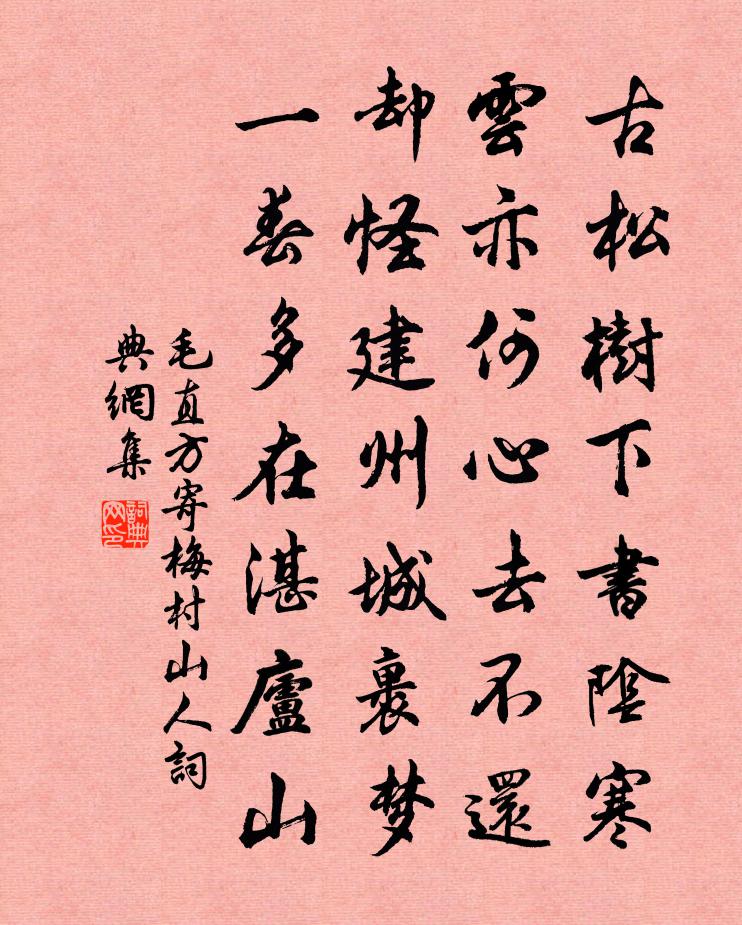 古松樹下書陰寒
雲亦何心去不還
却怪建州城裏梦
一春多在湛廬山
毛直方寄梅村山人詞
典網集
詞典網印